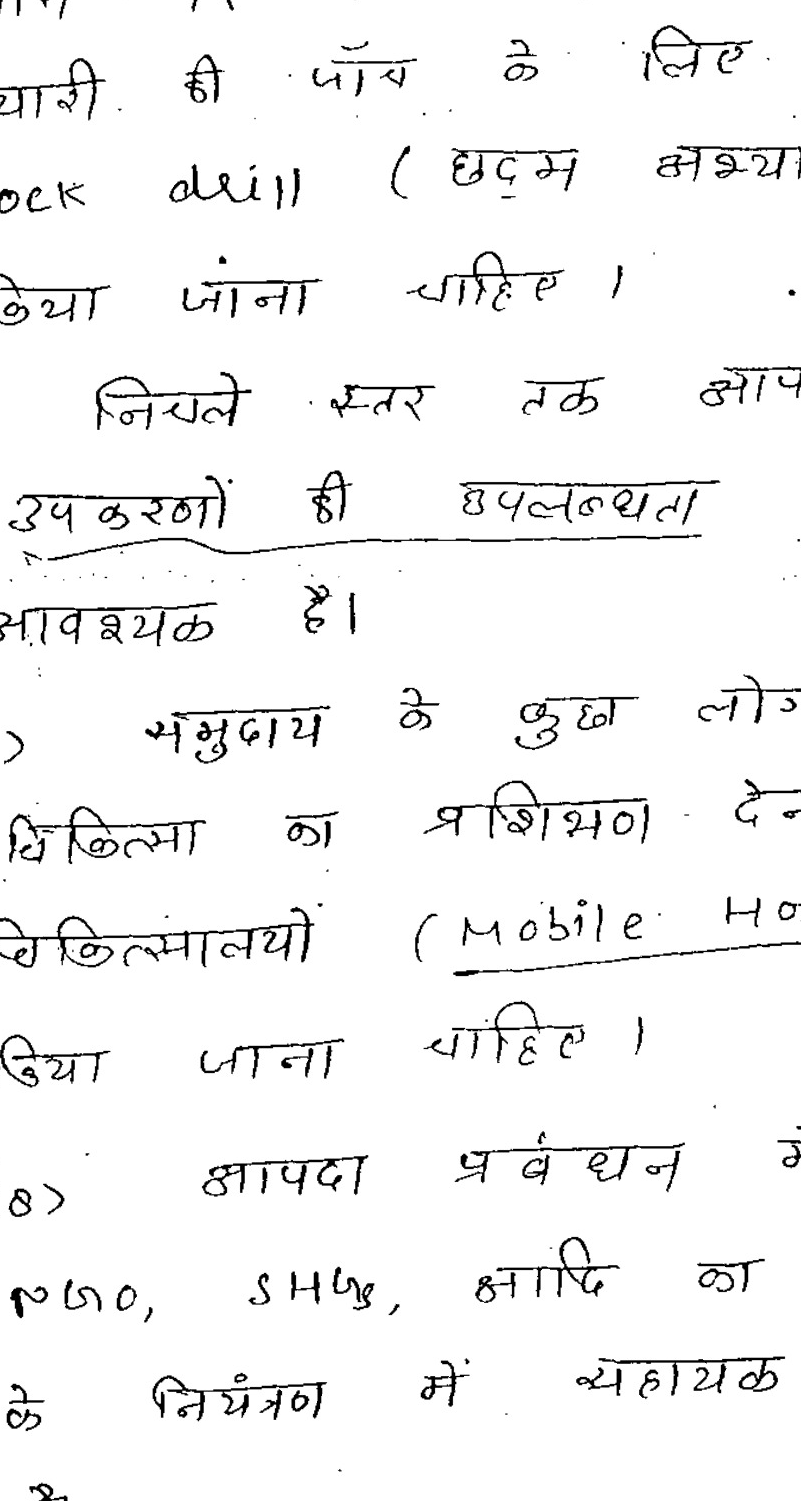 यारी की जाँच के लिए
ock drill (छद्म अभ्या
किया जाना चाहिए।
निचले स्तर तक आप
उपकरणों की उपलब्धता
आवश्यक है।
) समुदाय के कुछ लोग
चिकित्सा का प्रशिक्षण देन
चिकित्सालयों (Mobile Ho
किया जाना चाहिए।
8) आपदा प्रबंधन में
NGO, SHGs, आदि का
के नियंत्रण में सहायक